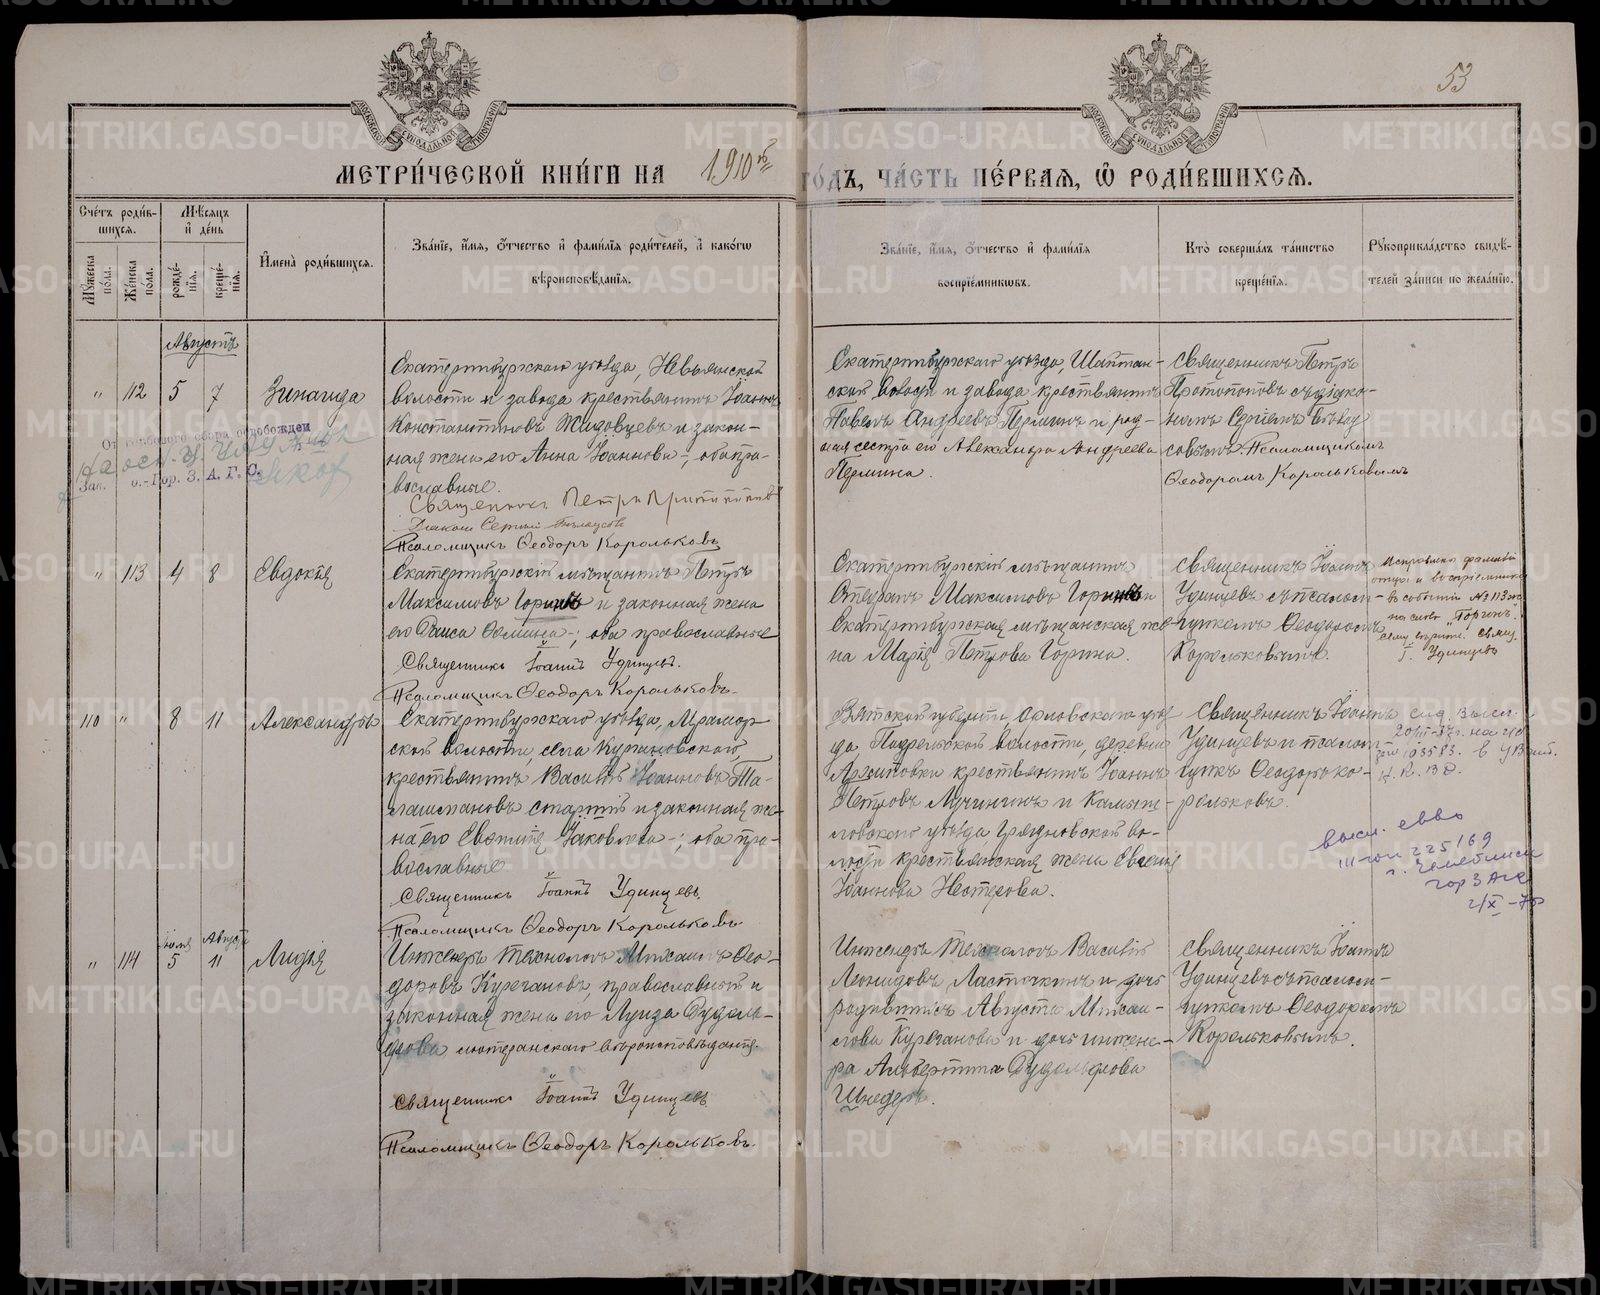 53
МЕТРИ́ЧЕСКОЙ КНИ́ГИ НА 1910й ГО́ДЪ, ЧА́СТЬ ПЕ́РВАЯ, Ѡ РОДИ́ВШИХСЯ.
Сче́тъ роди́в-
шихся.
Мꙋ́жеска по́ла.
Же́нска по́ла.
Мѣ́сяцъ
и де́нь
рожде́-
нїя.
креще́-
нїя.
И҆мена̀ роди́вшихся.
Зва́нїе, и҆́мя, ѻ҆́тчество и҆ фами́лїя роди́телей, и҆ како́гѡ
вѣроисповѣ́данїя.
Зва́нїе, и҆́мя, ѻ҆́тчество и҆ фами́лїя
воспрїе́мникѡвъ.
Кто̀ соверша́лъ та́инство
креще́нїя.
Рꙋкоприкла́дство свидѣ́-
телей за́писи по жела́нїю.
Августъ
" 112 5 7 Зинаида
Екатеринбургскаго уѣзда, Невьянской
волости и завода крестьянинъ Іоаннъ
Константиновъ Жидовцевъ и закон-
ная жена его Анна Іоаннова; оба пра-
вославные.
Священникъ Петръ Протопоповъ
Діаконъ Сергій
Псаломщикъ Ѳеодоръ Корольковъ
Екатеринбургскаго уѣзда, Шайтан-
ской волости и завода крестьянинъ
Павелъ Андреевъ Перминъ и род-
ная сестра его Александра Андреева
Пермина.
Священникъ Петръ
Протопоповъ съ діако-
номъ Сергіемъ
Псаломщикомъ
Ѳеодоромъ Корольковымъ
От гербового сбора освобожден
Зав. о.-Гор. З. А. Г. С.
" 113 4 8 Евдокія
Екатеринбургскій мѣщанинъ Петръ
Максимовъ Горинъ и законная жена
его Раиса Ѳомина; оба православные
Священникъ Іоаннъ Удинцевъ.
Псаломщикъ Ѳеодоръ Корольковъ.
Екатеринбургскій мѣщанинъ
Стефанъ Максимовъ Горинъ и
Екатеринбургская мѣщанская же-
на Марія Петрова Горина.
Священникъ Іоаннъ
Удинцевъ съ псалом-
щикомъ Ѳеодоромъ
Корольковымъ.
Исправлено фамилія
отца и воспріемника
въ событіи № 113
на слово "Горинъ".
Свящ.
І. Удинцевъ
110 " 8 11 Александръ
Екатеринбургскаго уѣзда, Мрамор-
ской волости, села Кургановскаго,
крестьянинъ Василій Іоанновъ Та-
лашмановъ старшій и законная же-
на его Евѳимія Іаковлева; оба пра-
вославные
Священникъ Іоаннъ Удинцевъ.
Псаломщикъ Ѳеодоръ Корольковъ
Вятской губерніи Орловскаго уѣз-
да, Подрельской волости, деревни
Архиповки крестьянинъ Іоаннъ
Петровъ Лучининъ и Камыш-
ловскаго уѣзда, Грязновской во-
лости крестьянская жена Евгенія
Іоаннова Нестерова.
Священникъ Іоаннъ
Удинцевъ и псалом-
щикъ Ѳеодоръ Ко-
рольковъ.
высл.
225169
г. Челябинск
гор ЗАГС
" 114
Іюля Августа
5 11 Лидія
Инженеръ Технологъ Михаилъ Ѳео-
доровъ Кургановъ, православный и
законная жена его Луиза Рудоль-
фова лютеранскаго вѣроисповѣданія.
Священникъ Іоаннъ Удинцевъ
Псаломщикъ Ѳеодоръ Корольковъ.
Инженеръ Технологъ Василій
Леонидовъ Ласточкинъ и дочь
Августа Михаи-
лова Курганова и дочь инжене-
ра Альбертина Рудольфова
Шнедеръ.
Священникъ Іоаннъ
Удинцевъ съ псалом-
щикомъ Ѳеодоромъ
Корольковымъ.
METRIKI.GASO-URAL.RU